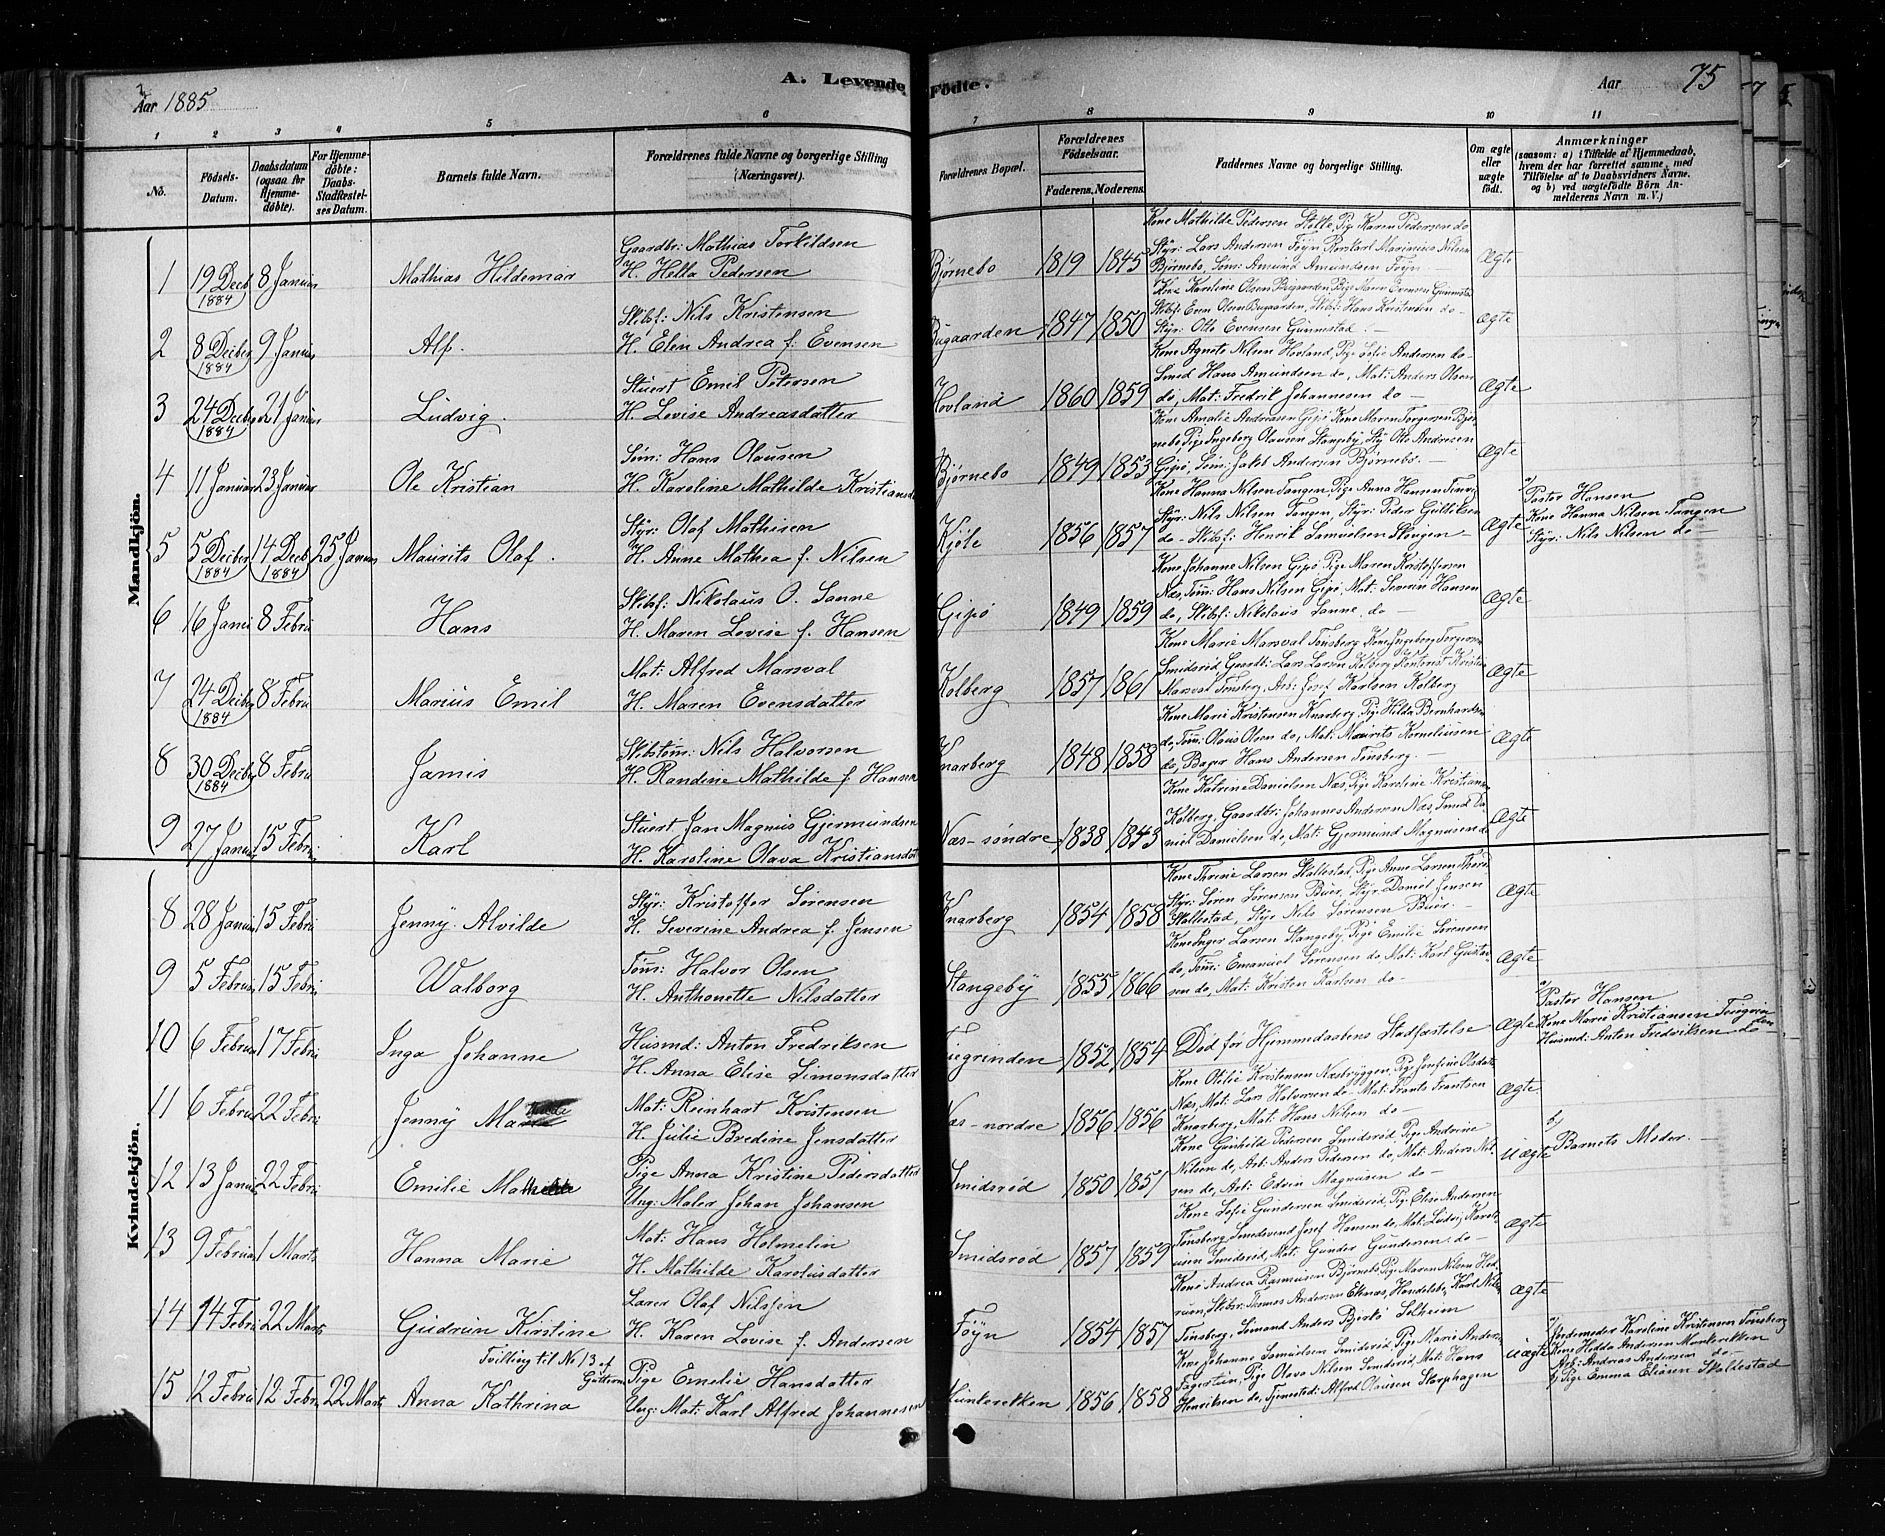 Aar 1885
A. Levende Fødte.
Aar 75
1 2 3 4 5 6 7 8 9 10 11
No.
Fødsels-Datum.
Daabsdatum (ogsaa for Hjemme-døbte).
For Hjemme-døbte: Daabs-Stadfæstel-ses Datum.
Barnets fulde Navn.
Forældrenes fulde Navne og borgerlige Stilling (Næringsvei).
Forældrenes Bopæl.
Forældrenes Fødselsaar.
Faderens. Moderens.
Faddernes Navne og borgerlige Stilling.
Om ægte eller uægte født.
Anmærkninger
(saasom: a) i Tilfælde af Hjemmedaab, hvem der har forrettet samme, med Tilføielse af to Daabsvidners Navne, og b) ved uægtefødte Børn An-melderens Navn m. V.)
Mandkjøn.
1 19 Decb 1884 8 Januar Mathias Hildemar
Gaardbr: Mathias Torkildsen
H. Hella Pedersen
Bjørnebo 1819 1845
Kone Mathilde Pedersen Stokke, Pige Karen Pedersen do
Styr: Lars Andersen Føyn
Bjørnebo, Søm: Amund Amundsen Føyn
Ægte
2 8 Decber 1884 9 Januar Alf.
Skibsf: Nils Kristensen
H. Elen Andrea f. Evensen
Bugaarden 1847 1850
Kone Karoline Olsen Bugaarden, Pige Maren Evensen Gunnestad
Skibsf: Even Olsen Bugaarden, Skibsf: Hans Kristensen do
Styr: Otto Evensen Gunnestad.
Ægte
3 24 Decber 1884 21 Januar Ludvig.
Stuert Emil Petersen
H. Lovise Andreasdatter
Hovland 1860 1859
Kone Agnete Nilsen Hovland, Pige Sofie Andersen do
Smed Hans Amundsen do, Mat: Anders Olsen
do, Mat: Fredrik Johannesen do
Ægte
4 11 Januar 23 Januar Ole Kristian
Søm: Hans Olausen
H. Karoline Mathilde Kristiansd
Bjørnebo 1849 1853
Kone Amalie Andreasen Gipø, Kone Maren Torgersen Bjør-
nebo, Pige Ingeborg Olausen Stangeby, Sty: Otto Andresen
Gipø, Søm: Jakob Andersen Bjørnebo.
Ægte
5 5 Decber 1884 14 Decb 1884 25 Januar Maurits Olaf.
Styr: Olaf Mathisen
H. Anne Mathea f. Nilsen
Kjøle 1856 1857
Kone Hanna Nilsen Tangen, Pige Anna Hansen
Styr: Nils Nilsen Tangen, Styr: Peder Gulliksen
do, Skibsf: Henrik Samuelsen Stangen
Ægte
a) Pastor Hansen
Kone Hanna Nilsen Tangen
Styr: Nils Nilsen do
6 16 Janu 8 Febru Hans
Skibsf: Nikolaus O. Sanne
H. Maren Lovise f. Hansen
Gipø 1849 1859
Kone Johanne Nilsen Gipø, Pige Maren Kristoffersen
Næs, Tøm: Hans Nilsen Gipø, Mat: Severin Hansen
do, Skibsf: Nikolaus Sanne do
Ægte
7 24 Decber 1884 8 Febru Marius Emil
Mat: Alfred Marsval
H. Maren Evensdatter
Kolberg 1857 1861
Kone Marie Marsval Tønsberg, Kone Ingeborg Torgersen
Smidsrød, Gaardb: Lars Larsen Kolberg, Kontorist Kristian
Marsval Tønsberg, Arb: Josef Karlsen Kolberg
Ægte
8 30 Decber 1884 8 Febru Jamis
Skibstøm: Nils Halvorsen
H. Randine Mathilde f. Hansen
Knarberg 1848 1858
Kone Marie Kristensen Knarberg, Pige Hilda Bernhardsen
do, Tøm: Olaus Olsen do, Mat: Maurits Korneliusen
do, Bager Hans Andersen Tønsberg.
Ægte
9 27 Januar 15 Febru Karl
Stuert Jan Magnus Gjermundsen
H. Karoline Olava Kristiansdat
Næs-søndre 1838 1843
Kone Katrine Danielsen Næs, Pige Karoline Kristiansen
Kolberg, Gaardbr: Johannes Andersen Næs, Smed Da-
niel Danielsen do, Mat: Gjermund Magnusen do
Ægte
Kvindekjön.
8 28 Januar 15 Febru Jenny Alvilde
Styr: Kristoffer Sørensen
H. Severine Andrea f. Jensen
Knarberg 1854 1858
Kone Thrine Larsen Skallestad, Pige Anne Larsen
Styr: Søren Sørensen Buer, Styr: Daniel Jensen
Skallestad, Styr Nils Sørensen Buer
Ægte
9 5 Februar 15 Febru Walborg
Tøm: Halvor Olsen
H. Anthonette Nilsdatter
Stangeby 1855 1866
Kone Inger Larsen Stangeby, Pige Emilie Sørensen
do, Tøm: Emanuel Sørensen do, Mat: Karl Gustav-
sen do, Mat: Kristen Karlsen do
Ægte
10 6 Februar 17 Febru Inga Johanne
Husmd: Anton Fredriksen
H. Anna Elise Simonsdatter
Tiegrinden 1852 1854
Død før Hjemmedaabens Stadfæstelse
Ægte
a) Pastor Hansen
Kone Marie Kristiansen
Husmd: Anton Fredriksen do
11 6 Februar 22 Febru Jenny
Mat: Reinhart Kristensen
H. Julie Bredine Jensdatter
Næs-nordre 1856 1856
Kone Otilie Kristensen Næsbryggen, Pige Josefine Olsdatt
Næs, Mat: Lars Halvorsen do, Mat: Frants Frantsen
Knarberg, Mat: Hans Nilsen do
Ægte
12 13 Januar 22 Febru Emilie
Pige Anna Kristine Pedersdatter
Ung: Maler Johan Johansen
Smidsrød 1850 1851
Kone Gunhild Pedersen Smidsrød, Pige Andrine
Nilsen do, Arb: Anders Pedersen do, Mat: Anders Nil-
sen do, Arb: Edvin Magnusen do
Uægte
b) Barnets Moder.
13 9 Februar 1 Marts Hanna Marie
Mat: Hans Holmelin
H. Mathilde Karolusdatter
Smidsrød 1857 1859
Kone Sofie Gundersen Smidsrød, Pige Elise Andersen
Tønsberg, Smedsvend Josef Hansen do, Mat: Ludvig
Smidsrød, Mat: Gunder Gundersen do
Ægte
14 14 Febru 22 Marts Gudrun Kirstine
Lærer Olaf Nilssen
H. Karen Lovise f. Andersen
Føyn 1854 1857
Kone Andrea Rasmusen Bjørnebo, Pige Maren Nilsen
Tønsberg, Sømand Anders Bjerkø Solheim
Ægte
Tvilling til No 13 af Gutterne
15 12 Febru 12 Febr. 22 Marts Anna Kathrina
Pige Emelie Hansdatter
Ung: Mat: Karl Alfred Johannesen
Munkerekken 1856 1858
Kone Johanne Samuelsen Smidsrød, Pige Marie Ander-
Fagertun, Pige Olava Nilsen Smidsrød, Mat: Hans
Henriksen do, Tjenested: Alfred Olausen Skorphagen
Uægte
a) Jordemoder Karoline Kristensen Tønsberg
Kone Hedda Andersen Munkerekken
Arb: Andreas Andersen do
b) Pige Emma Eliasen Skallestad